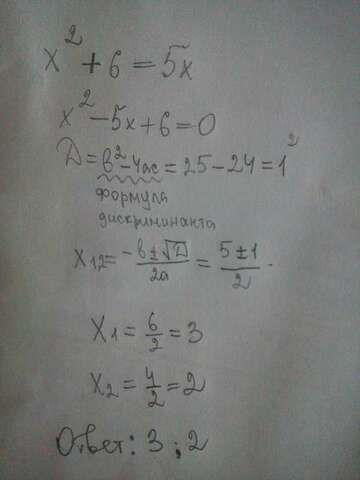 x² + 6 = 5x
x² - 5x + 6 = 0
D = b² - 4ac = 25 - 24 = 1²
формула
дискриминанта
x₁,₂ = (-b ± √D) / 2a = (5 ± 1) / 2 .
x₁ = 6/2 = 3
x₂ = 4/2 = 2
Ответ: 3 ; 2